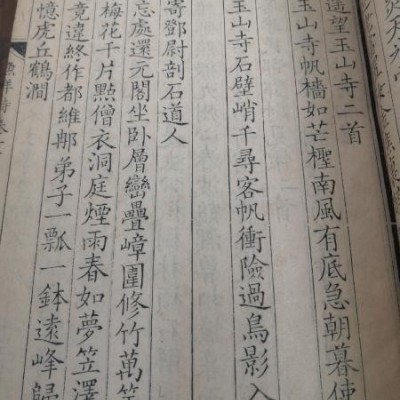 遥望玉山寺二首
玉山寺帆檣如芒檉南風有底急朝暮使
玉山寺石壁峭千尋客帆衝險過鳥影入
寄鄧尉剖石道人
忘處還元閣坐卧層巒疊嶂圍修竹萬竿
梅花千片點僧衣洞庭煙雨春如夢笠澤
竟違終作都維那弟子一瓢一鉢遠峰歸
憶虎丘鶴澗